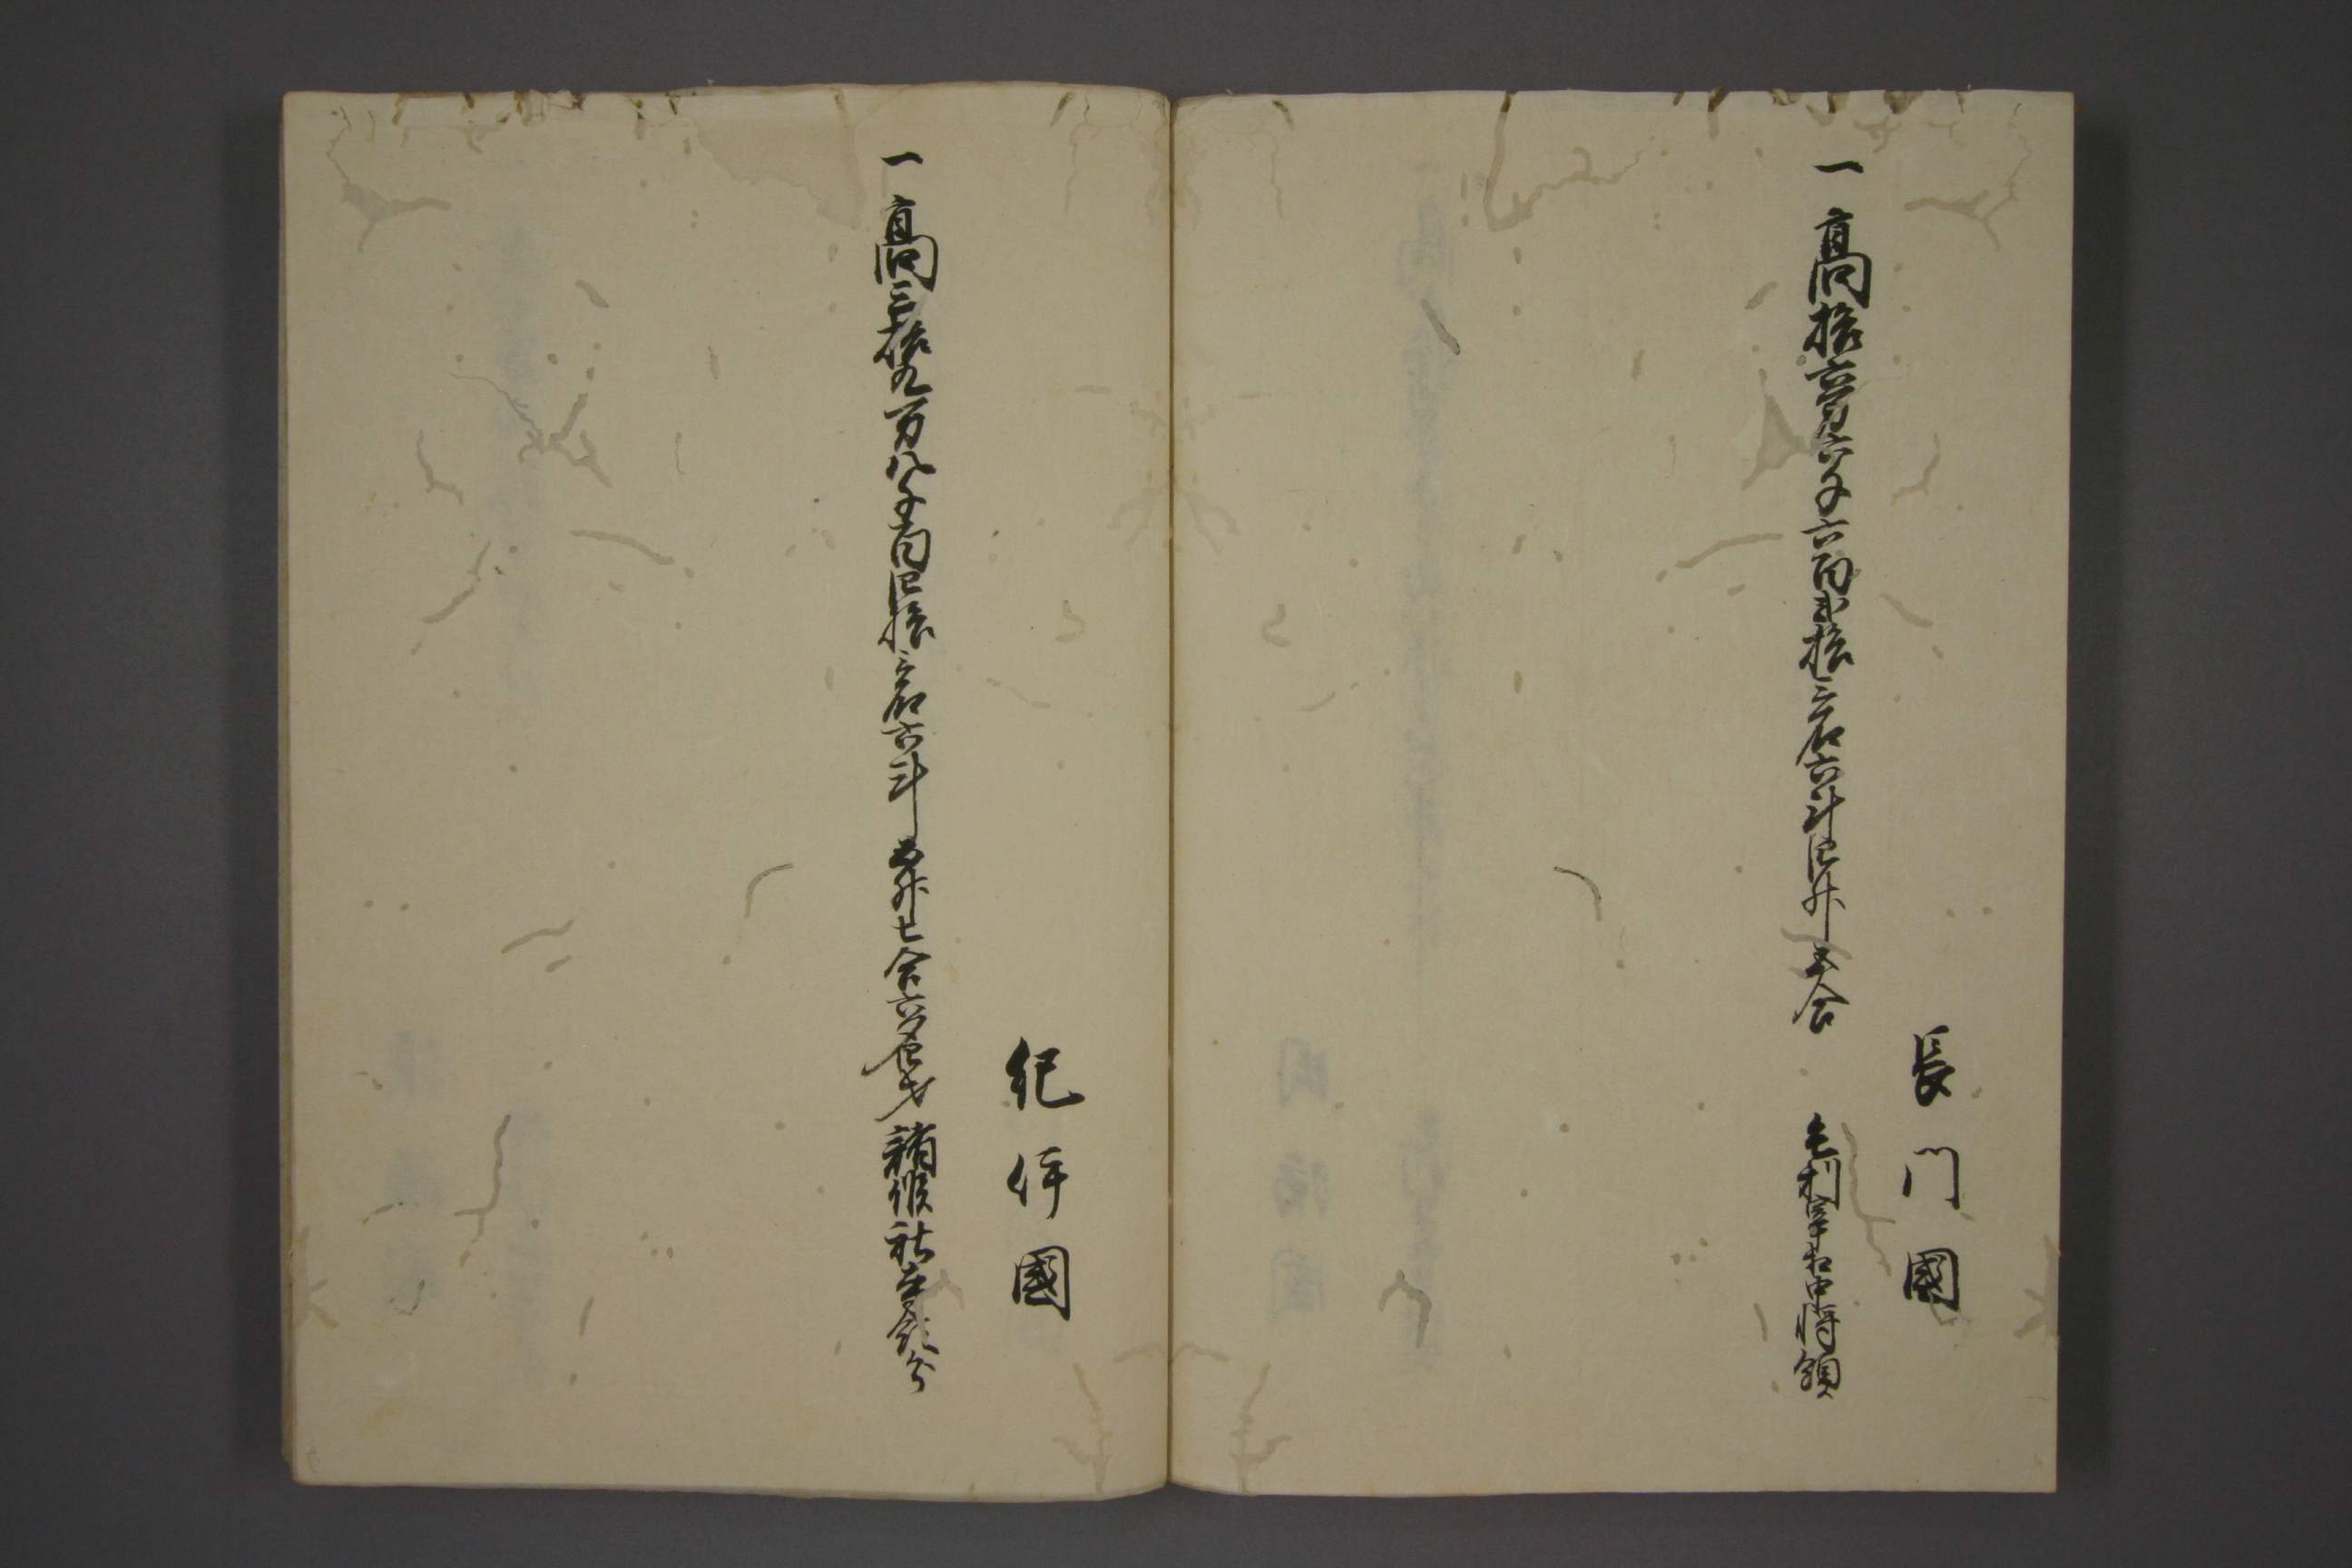 長門國
一高拾六万六千六百弐拾三石六斗四升五合　毛利宰相中将領
紀伊國
一高三拾九万八千百四拾三石六斗五升七合六夕四才　諸侯社寺領分